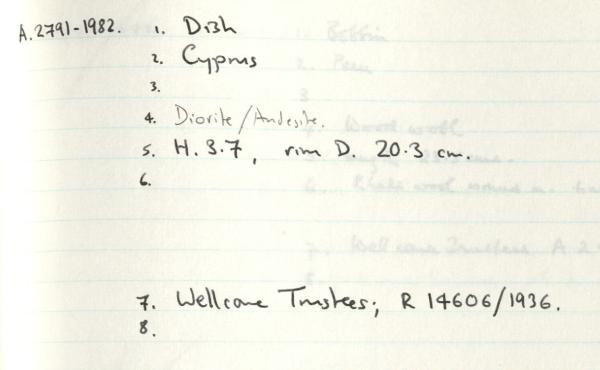 A.2791-1982. 1. Dish
2. Cyprus
3.
4. Diorite/Andesite.
5. H. 3.7, rim D. 20.3 cm.
6.
7. Wellcome Trustees; R 14606/1936.
8.